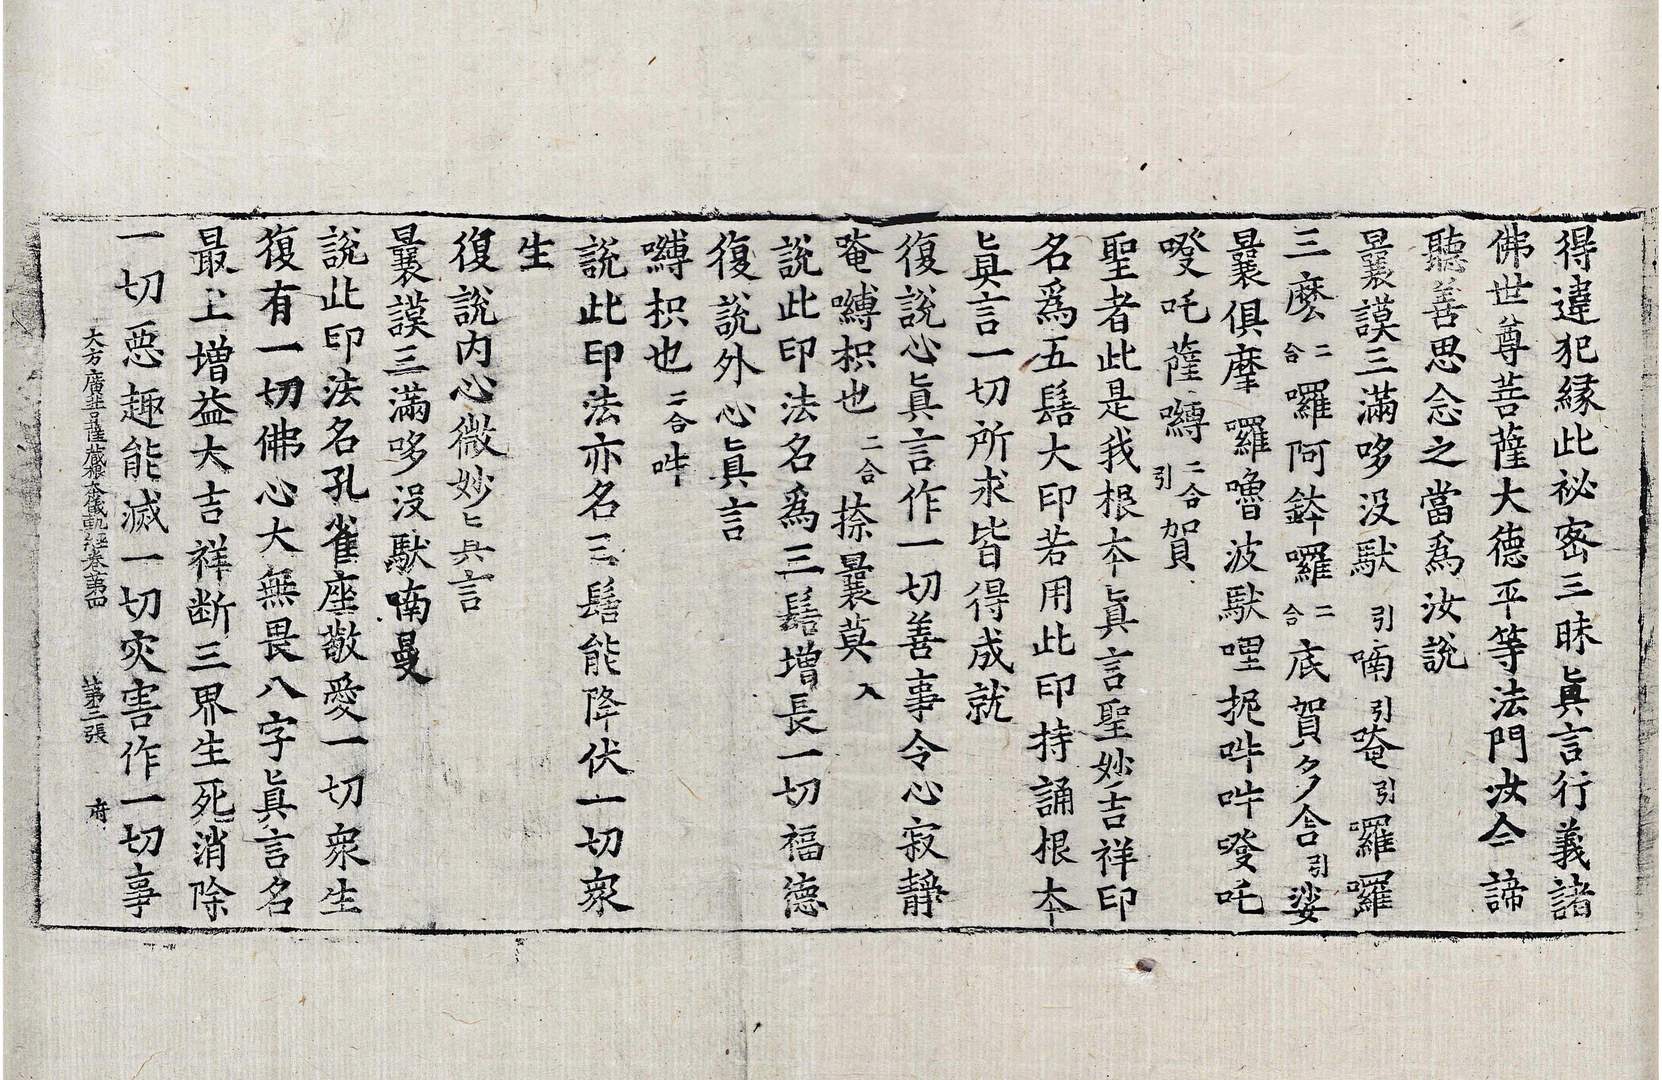 得違犯縁此祕密三昧眞言行義諸
佛世尊菩薩大德平等法門汝今諦
聽善思念之當爲汝說
曩謨三滿哆没馱引喃引唵引囉囉
三麼二合囉阿鉢囉二合底賀多舍引娑
曩俱摩囉嚕波馱哩抳吽吽登吒
登吒薩嚩二合引賀
聖者此是我根本眞言聖妙吉祥印
名爲五髻大印若用此印持誦根本
眞言一切所求皆得成就
復說心眞言作一切善事令心寂靜
唵嚩枳也二合捺曩莫入
說此印法名爲三髻增長一切福德
復說外心眞言
嚩枳也二合吽
說此印法亦名三髻能降伏一切衆
生
復說内心微妙眞言
曩謨三滿哆没馱喃曼
說此印法名孔雀座敬愛一切衆生
復有一切佛心大無畏八字眞言名
最上增益大吉祥断三界生死消除
一切惡趣能滅一切灾害作一切事
大方廣菩薩藏根本儀軌經卷第四 第三張 府